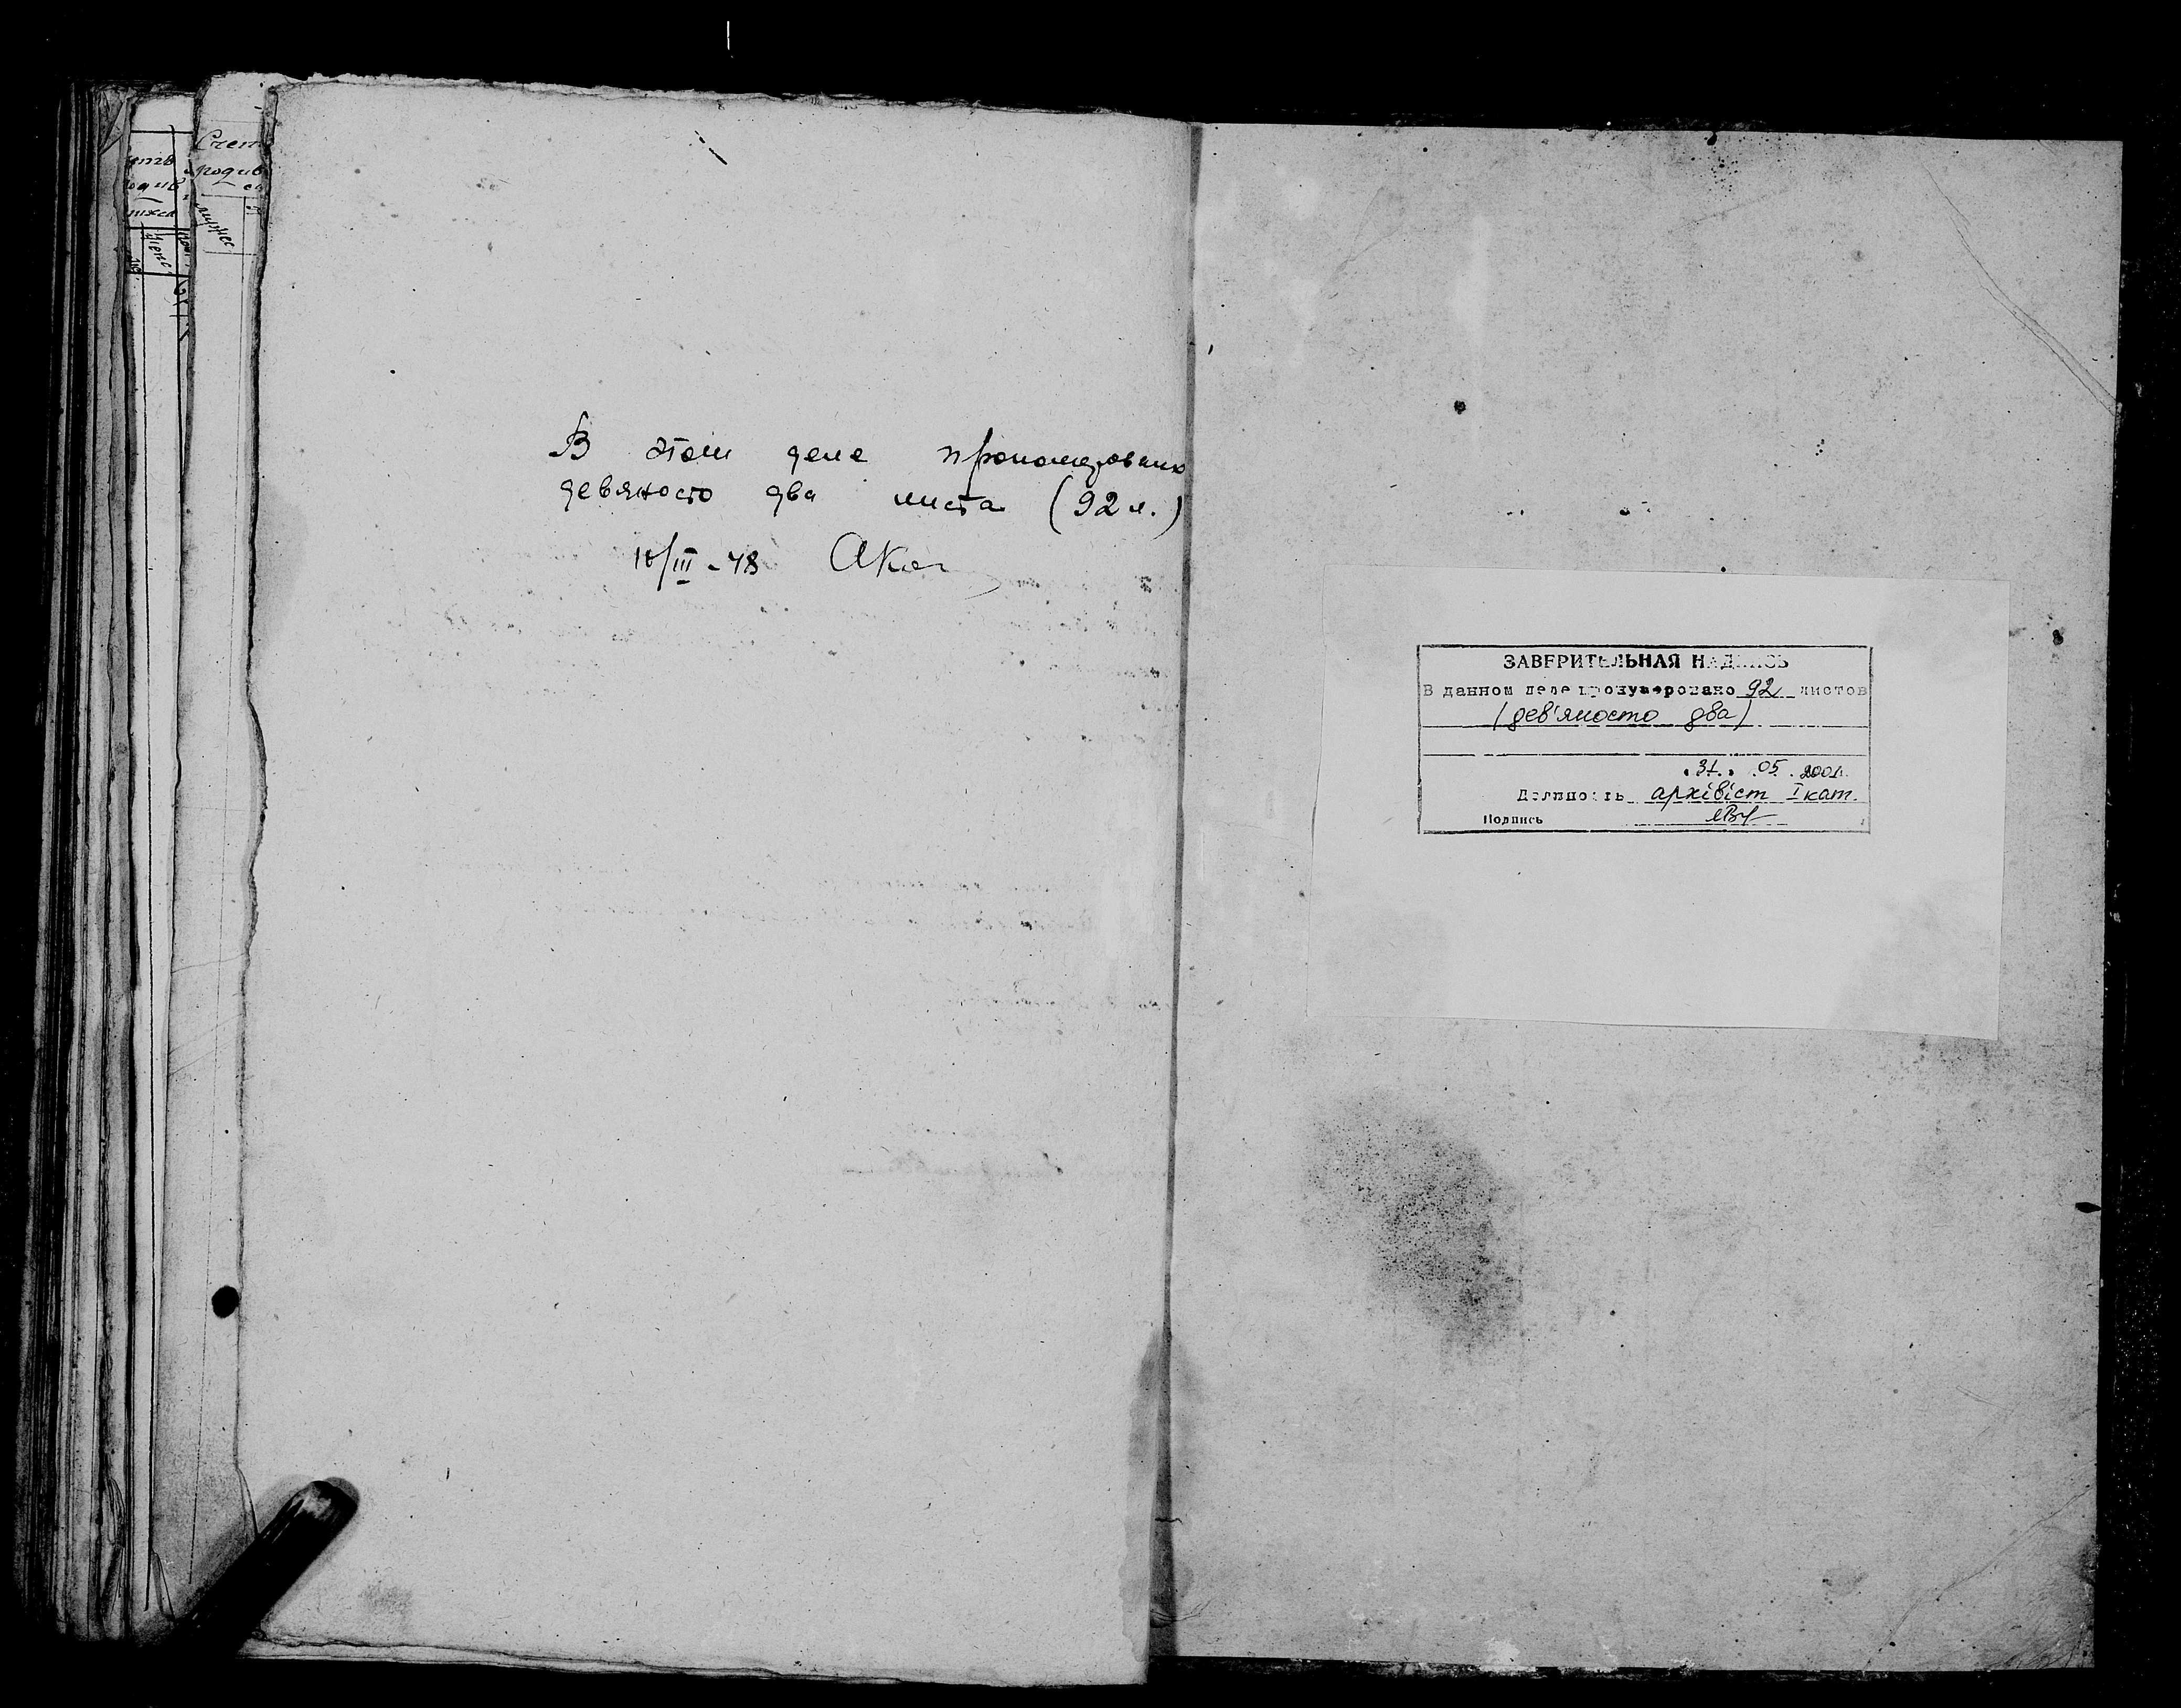 Счет
родив
мужес
В этом деле пронумеровано
девяносто два листа (92 л.)
10/III-48
ЗАВЕРИТЕЛЬНАЯ НАДПИСЬ
В данном деле пронумеровано 92 листов
(дев'яносто два)
31. 05. 2001.
Должность архівіст І кат.
Подпись